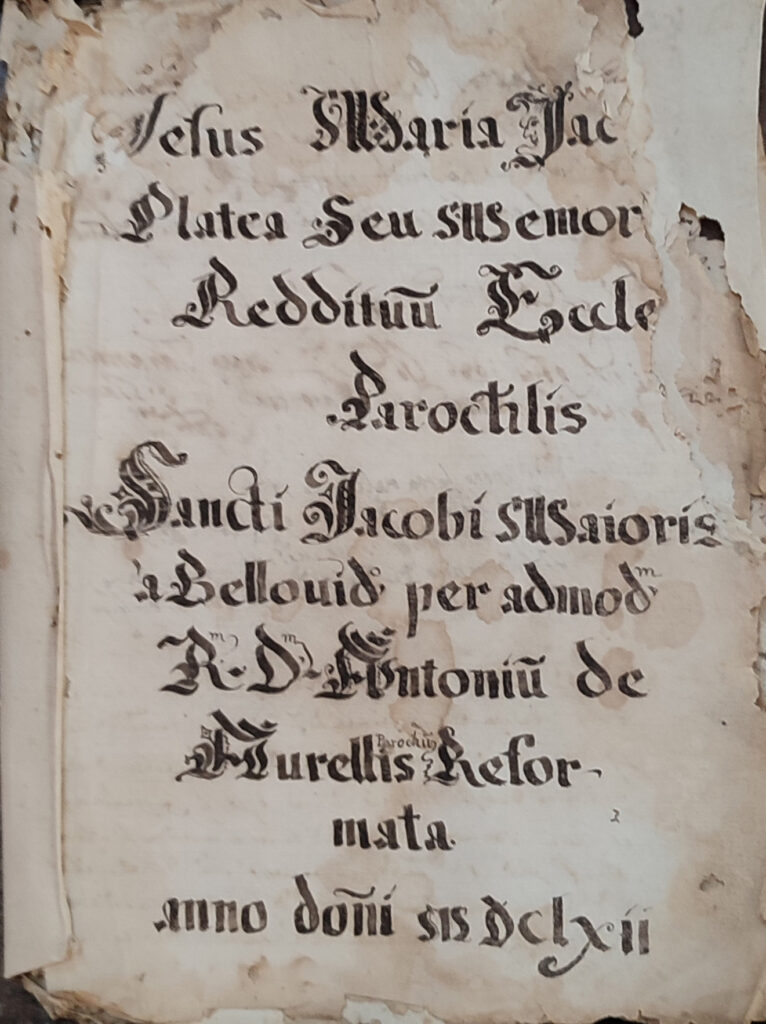 Jesus Maria Jac
Platea Seu Memor
Reddituū Eccle
Parochlis
Sancti Jacobi Maioris
a Bellouid per admodᵐ
Rᵐ. Dᵐ. Antoniū de
Aurellis Parochū Refor-
mata.
anno dom̄i MDClxii